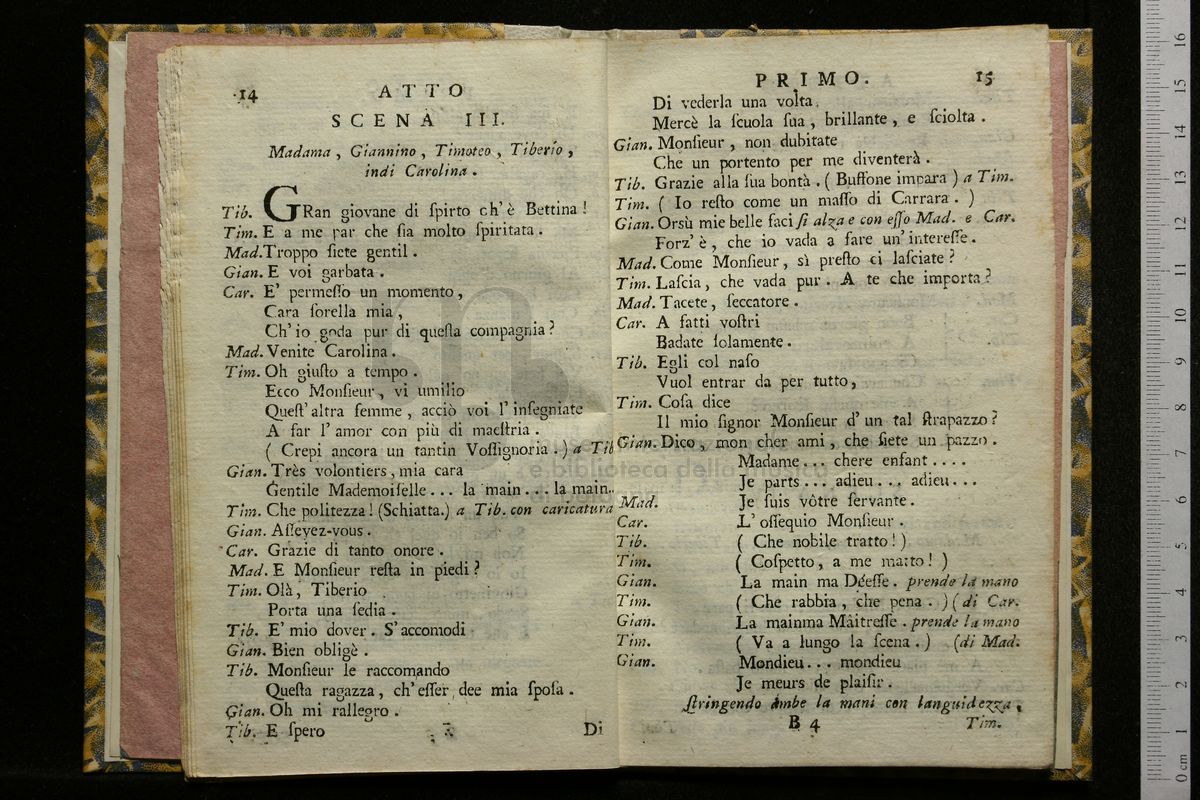 14
ATTO
SCENA III.
Madama, Giannino, Timoteo, Tiberio,
indi Carolina.
Tib. GRan giovane di ſpirto ch'è Bettina!
Tim. E a me par che ſia molto ſpiritata.
Mad. Troppo ſiete gentil.
Gian. E voi garbata.
Car. E' permeſſo un momento,
Cara ſorella mia,
Ch'io goda pur di queſta compagnia?
Mad. Venite Carolina.
Tim. Oh giuſto a tempo.
Ecco Monſieur, vi umilio
Queſt'altra femme, acciò voi l'inſegniate
A far l'amor con più di maeſtria.
( Crepi ancora un tantin Voſſignoria.) a Tib
Gian. Très volontiers, mia cara
Gentile Mademoiſelle... la main... la main..
Tim. Che politezza! (Schiatta.) a Tib. con caricatura
Gian. Aſſeyez-vous.
Car. Grazie di tanto onore.
Mad. E Monſieur reſta in piedi?
Tim. Olà, Tiberio
Porta una ſedia.
Tib. E' mio dover. S'accomodi
Gian. Bien obligè.
Tib. Monſieur le raccomando
Queſta ragazza, ch'eſſer dee mia ſpoſa.
Gian. Oh mi rallegro.
Tib. E ſpero
Di
PRIMO.
15
Di vederla una volta,
Mercè la ſcuola ſua, brillante, e ſciolta.
Gian. Monſieur, non dubitate
Che un portento per me diventerà.
Tib. Grazie alla ſua bontà. ( Buffone impara ) a Tim.
Tim. ( Io reſto come un maſſo di Carrara. )
Gian. Orsù mie belle faci ſi alza e con eſſo Mad. e Car.
Forz'è, che io vada a fare un'intereſſe.
Mad. Come Monſieur, sì preſto ci laſciate?
Tim. Laſcia, che vada pur. A te che importa?
Mad. Tacete, ſeccatore.
Car. A fatti voſtri
Badate ſolamente.
Tib. Egli col naſo
Vuol entrar da per tutto,
Tim. Coſa dice
Il mio ſignor Monſieur d'un tal ſtrapazzo?
Gian. Dico, mon cher ami, che ſiete un pazzo.
Madame... chere enfant....
Je parts... adieu... adieu...
Mad. Je ſuis vôtre ſervante.
Car. L'oſſequio Monſieur.
Tib. ( Che nobile tratto!)
Tim. ( Coſpetto, a me matto! )
Gian. La main ma Déeſſe. prende la mano
Tim. ( Che rabbia, che pena. ) (di Car.
Gian. La mainma Màitreſſe. prende la mano
Tim. ( Va a lungo la ſcena.) (di Mad.
Gian. Mondieu... mondieu
Je meurs de plaiſir.
ſtringendo ambe la mani con languidezza,
B 4
Tim.
e biblioteca della musica
0 cm 1 2 3 4 5 6 7 8 9 10 11 12 13 14 15 16